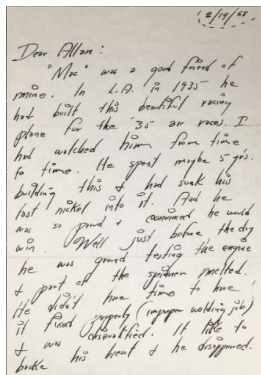 2/19/68
Dear Allan:
"Mac" was a good friend of
mine. In L.A. in 1935 he
had built this beautiful racing
plane for the '35 air races. I
had watched him from time
to time. He spent maybe 5 yrs.
building this & had sunk his
last nickel into it. And he
was so proud & convinced he would
win. Well just before the day
he was ground testing the engine
& part of the melted.
He didn't have time to have
it fixed properly (improper welding job)
& was disqualified. It like to
broke his heart & he disappeared.